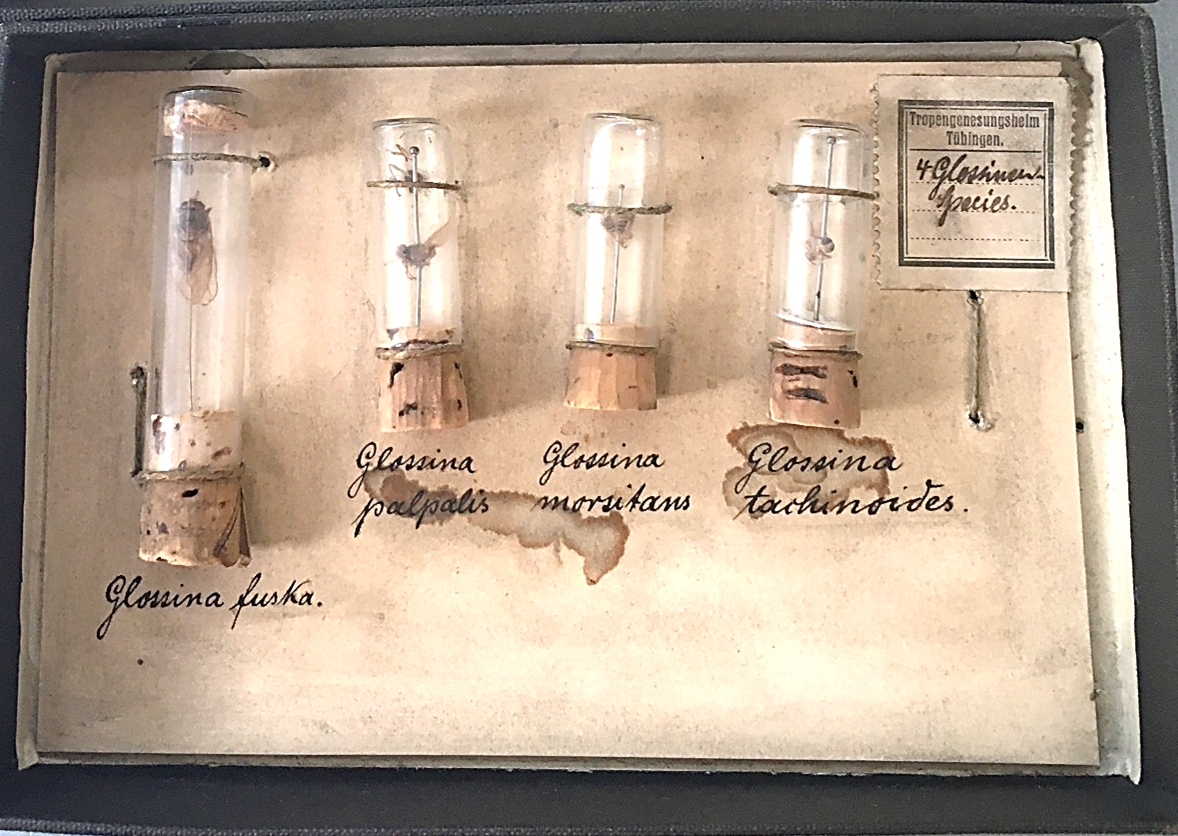 Tropengenesungsheim
Tübingen.
4 Glossinen-
Species.
Glossina
palpalis
Glossina
morsitans
Glossina
tachinoides.
Glossina fuska.